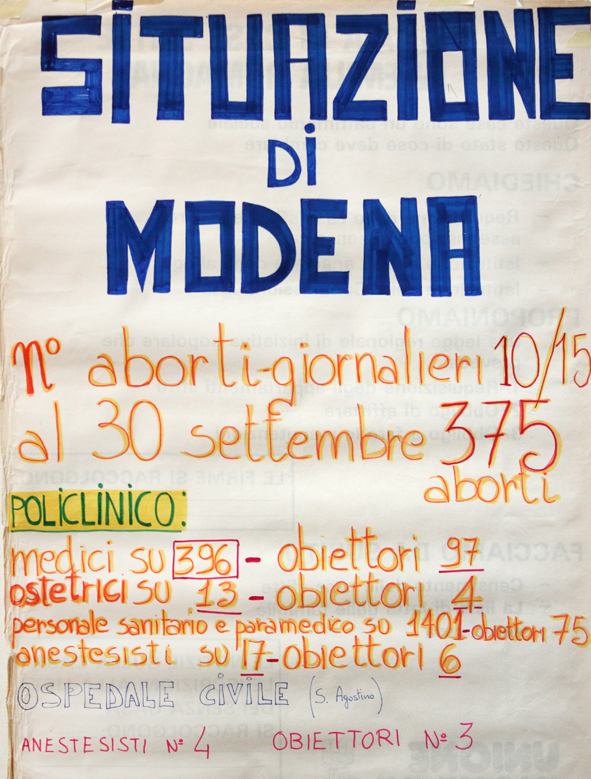 SITUAZIONE
DI
MODENA
n° aborti-giornalieri 10/15
al 30 settembre 375
aborti
POLICLINICO:
medici su 396 - obiettori 97
ostetrici su 13 - obiettori 4
personale sanitario e paramedico su 1401-obiettori 75
anestesisti su 17-obiettori 6
OSPEDALE CIVILE (S. Agostino)
ANESTESISTI N° 4 OBIETTORI N° 3